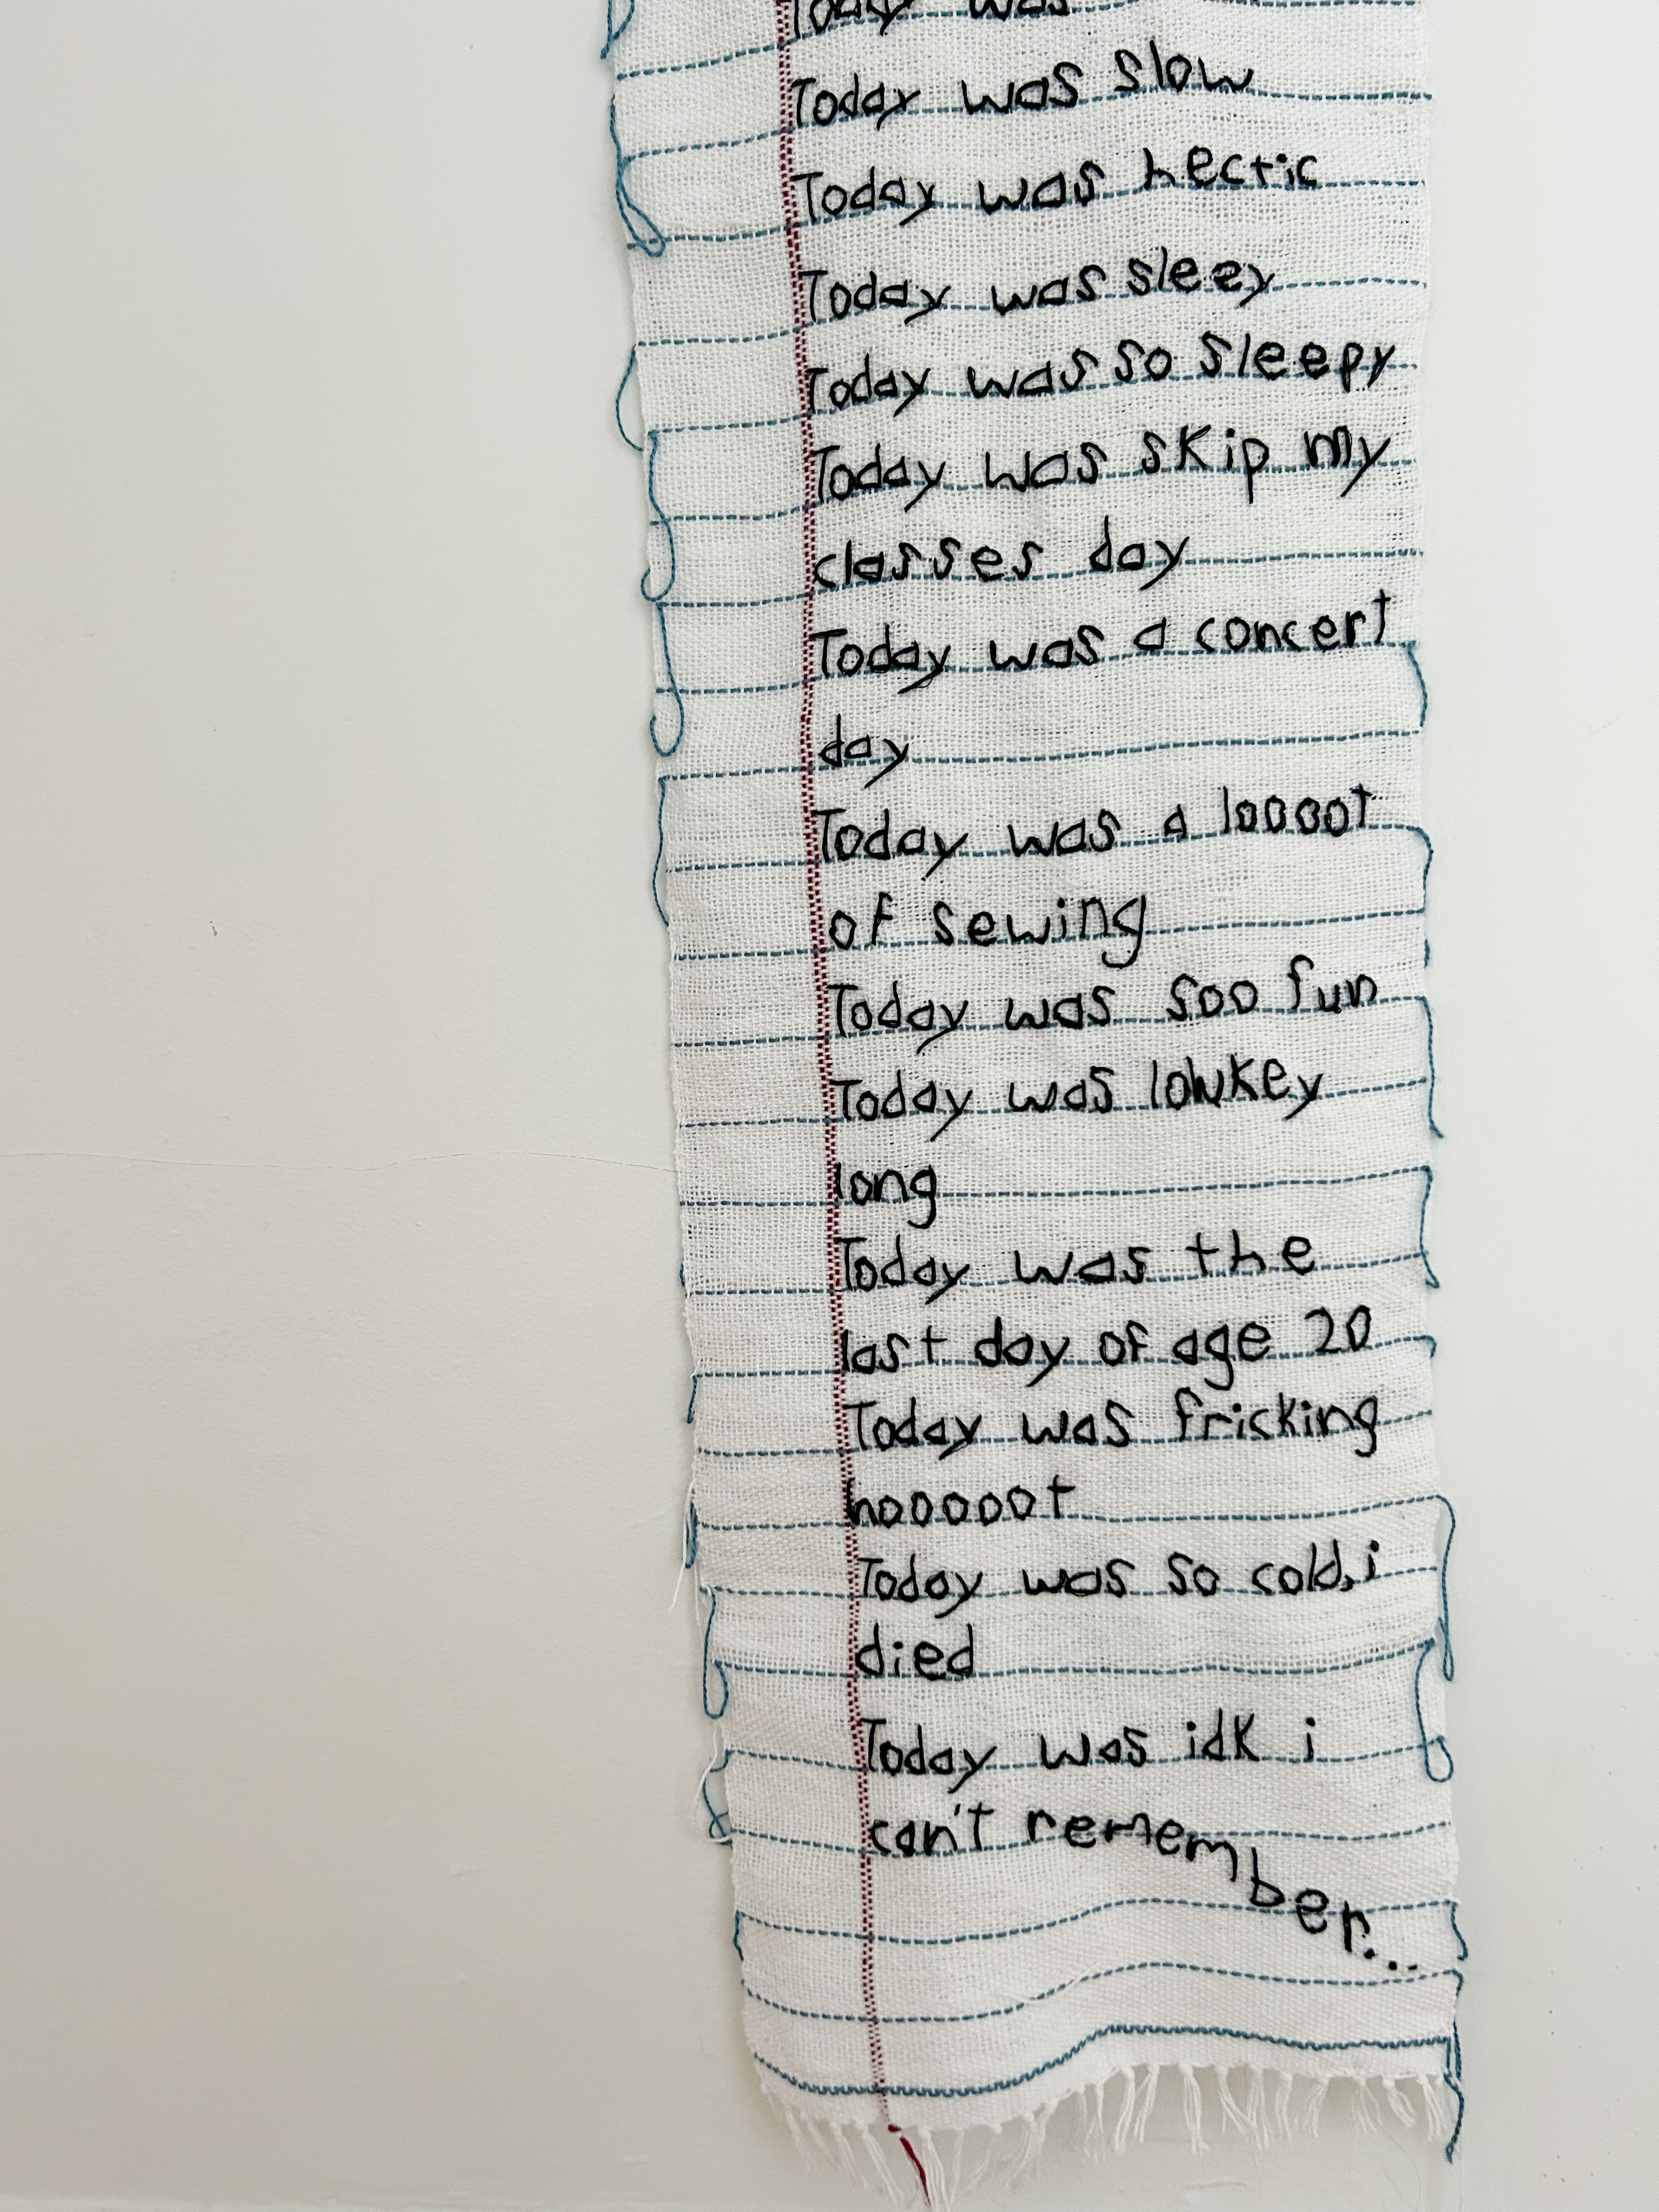 Today was
Today was slow
Today was hectic
Today was sleey
Today was so sleepy
Today was skip my
classes day
Today was a concert
day
Today was a looooot
of sewing
Today was soo fun
Today was lowkey
long
Today was the
last day of age 20
Today was fricking
hooooot
Today was so cold, i
died
Today was idk i
can't remember...